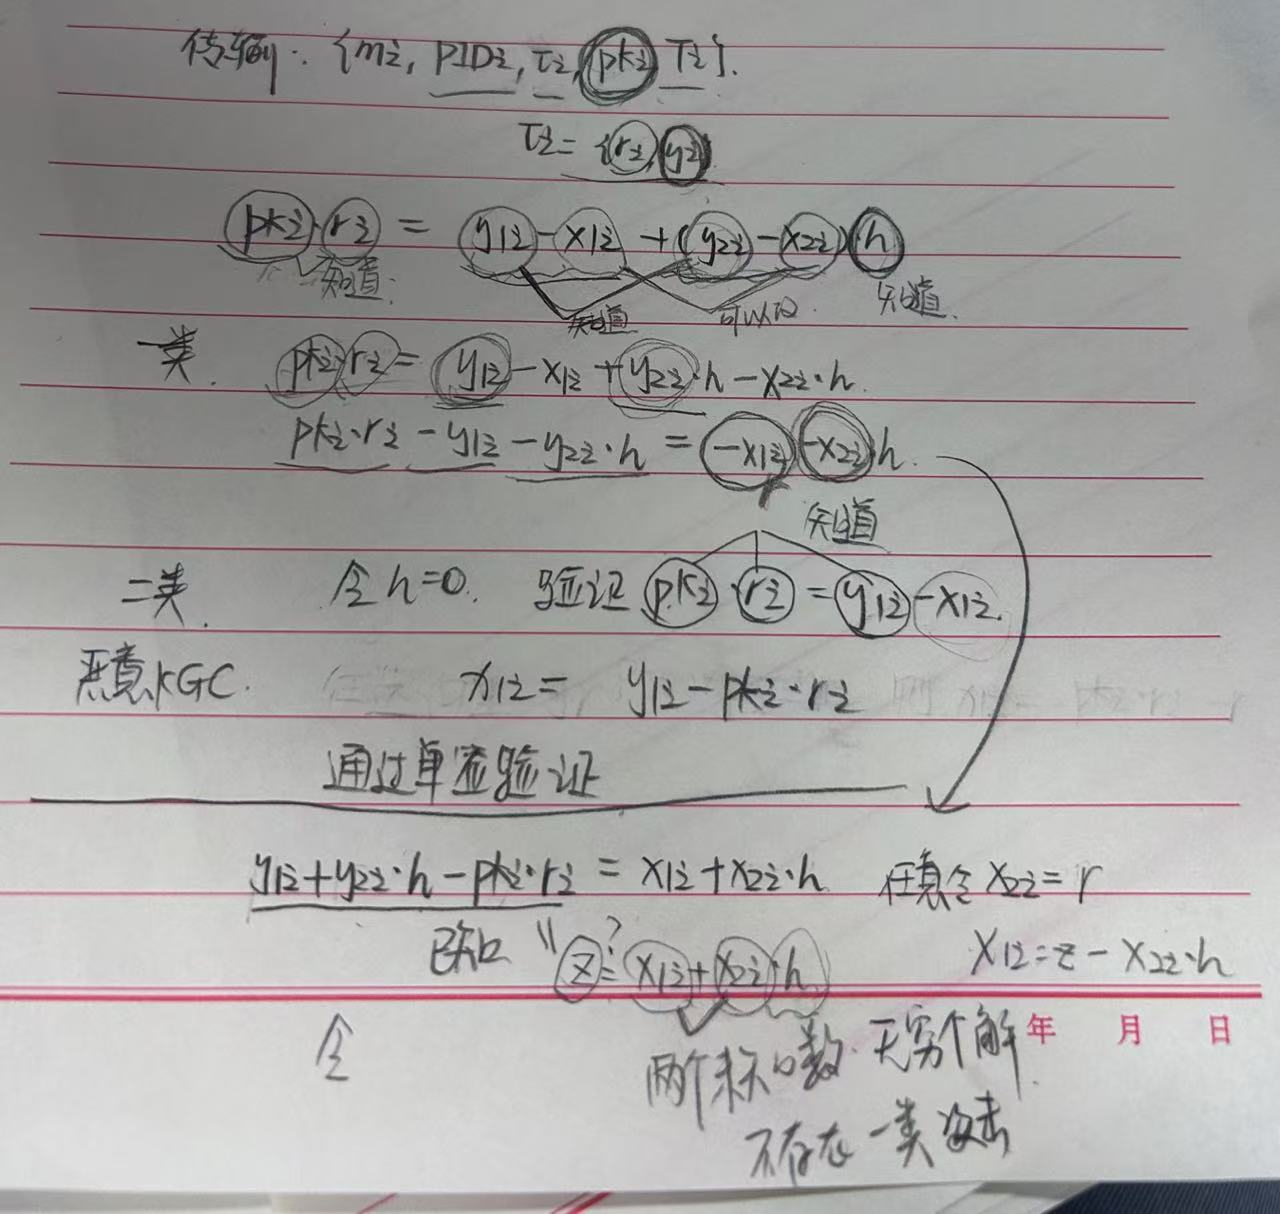 传输: {mi, PIDi, τi, pki Ti}.
τi = {ri, yi}
pki·ri = y1i - x1i + (y2i - x2i) h
知道. 知道 可以设. 知道.
一类. pki·ri = y1i - x1i + y2i·h - x2i·h.
pki·ri - y1i - y2i·h = -x1i - x2i h.
知道
二类. 令 h=0. 验证 pki·ri = y1i - x1i.
恶意KGC. x1i = y1i - pki·ri
通过单签验证
y1i + y2i·h - pki·ri = x1i + x2i·h. 任意令 x2i = r
已知 "z =? x1i + x2i·h x1i = z - x2i·h
令 两个未知数. 无穷个解. 年 月 日
不存在一类攻击